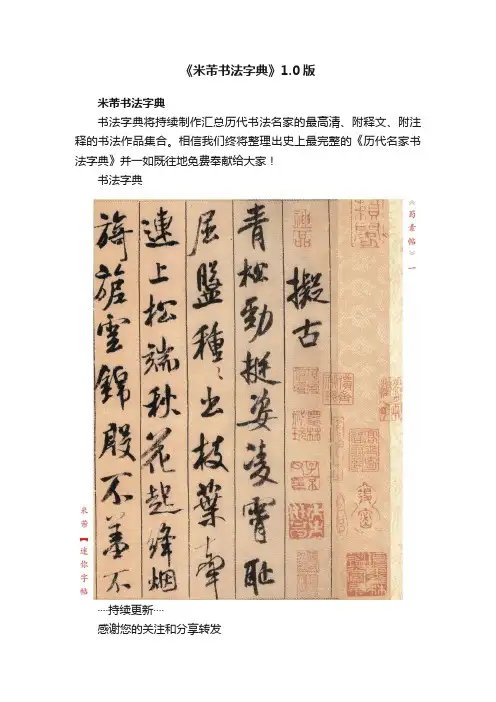 《米芾书法字典》1.0版
米芾书法字典
书法字典将持续制作汇总历代书法名家的最高清、附释文、附注
释的书法作品集合。相信我们终将整理出史上最完整的《历代名家书
法字典》并一如既往地免费奉献给大家！
书法字典
《蜀素帖》一
擬古
青松勁挺姿凌霄耻
屈盤種〻出枝葉牽
連上松端秋花起絳烟
旖旎雲錦殷不羞不
米芾【迷你字帖
····持续更新····
感谢您的关注和分享转发